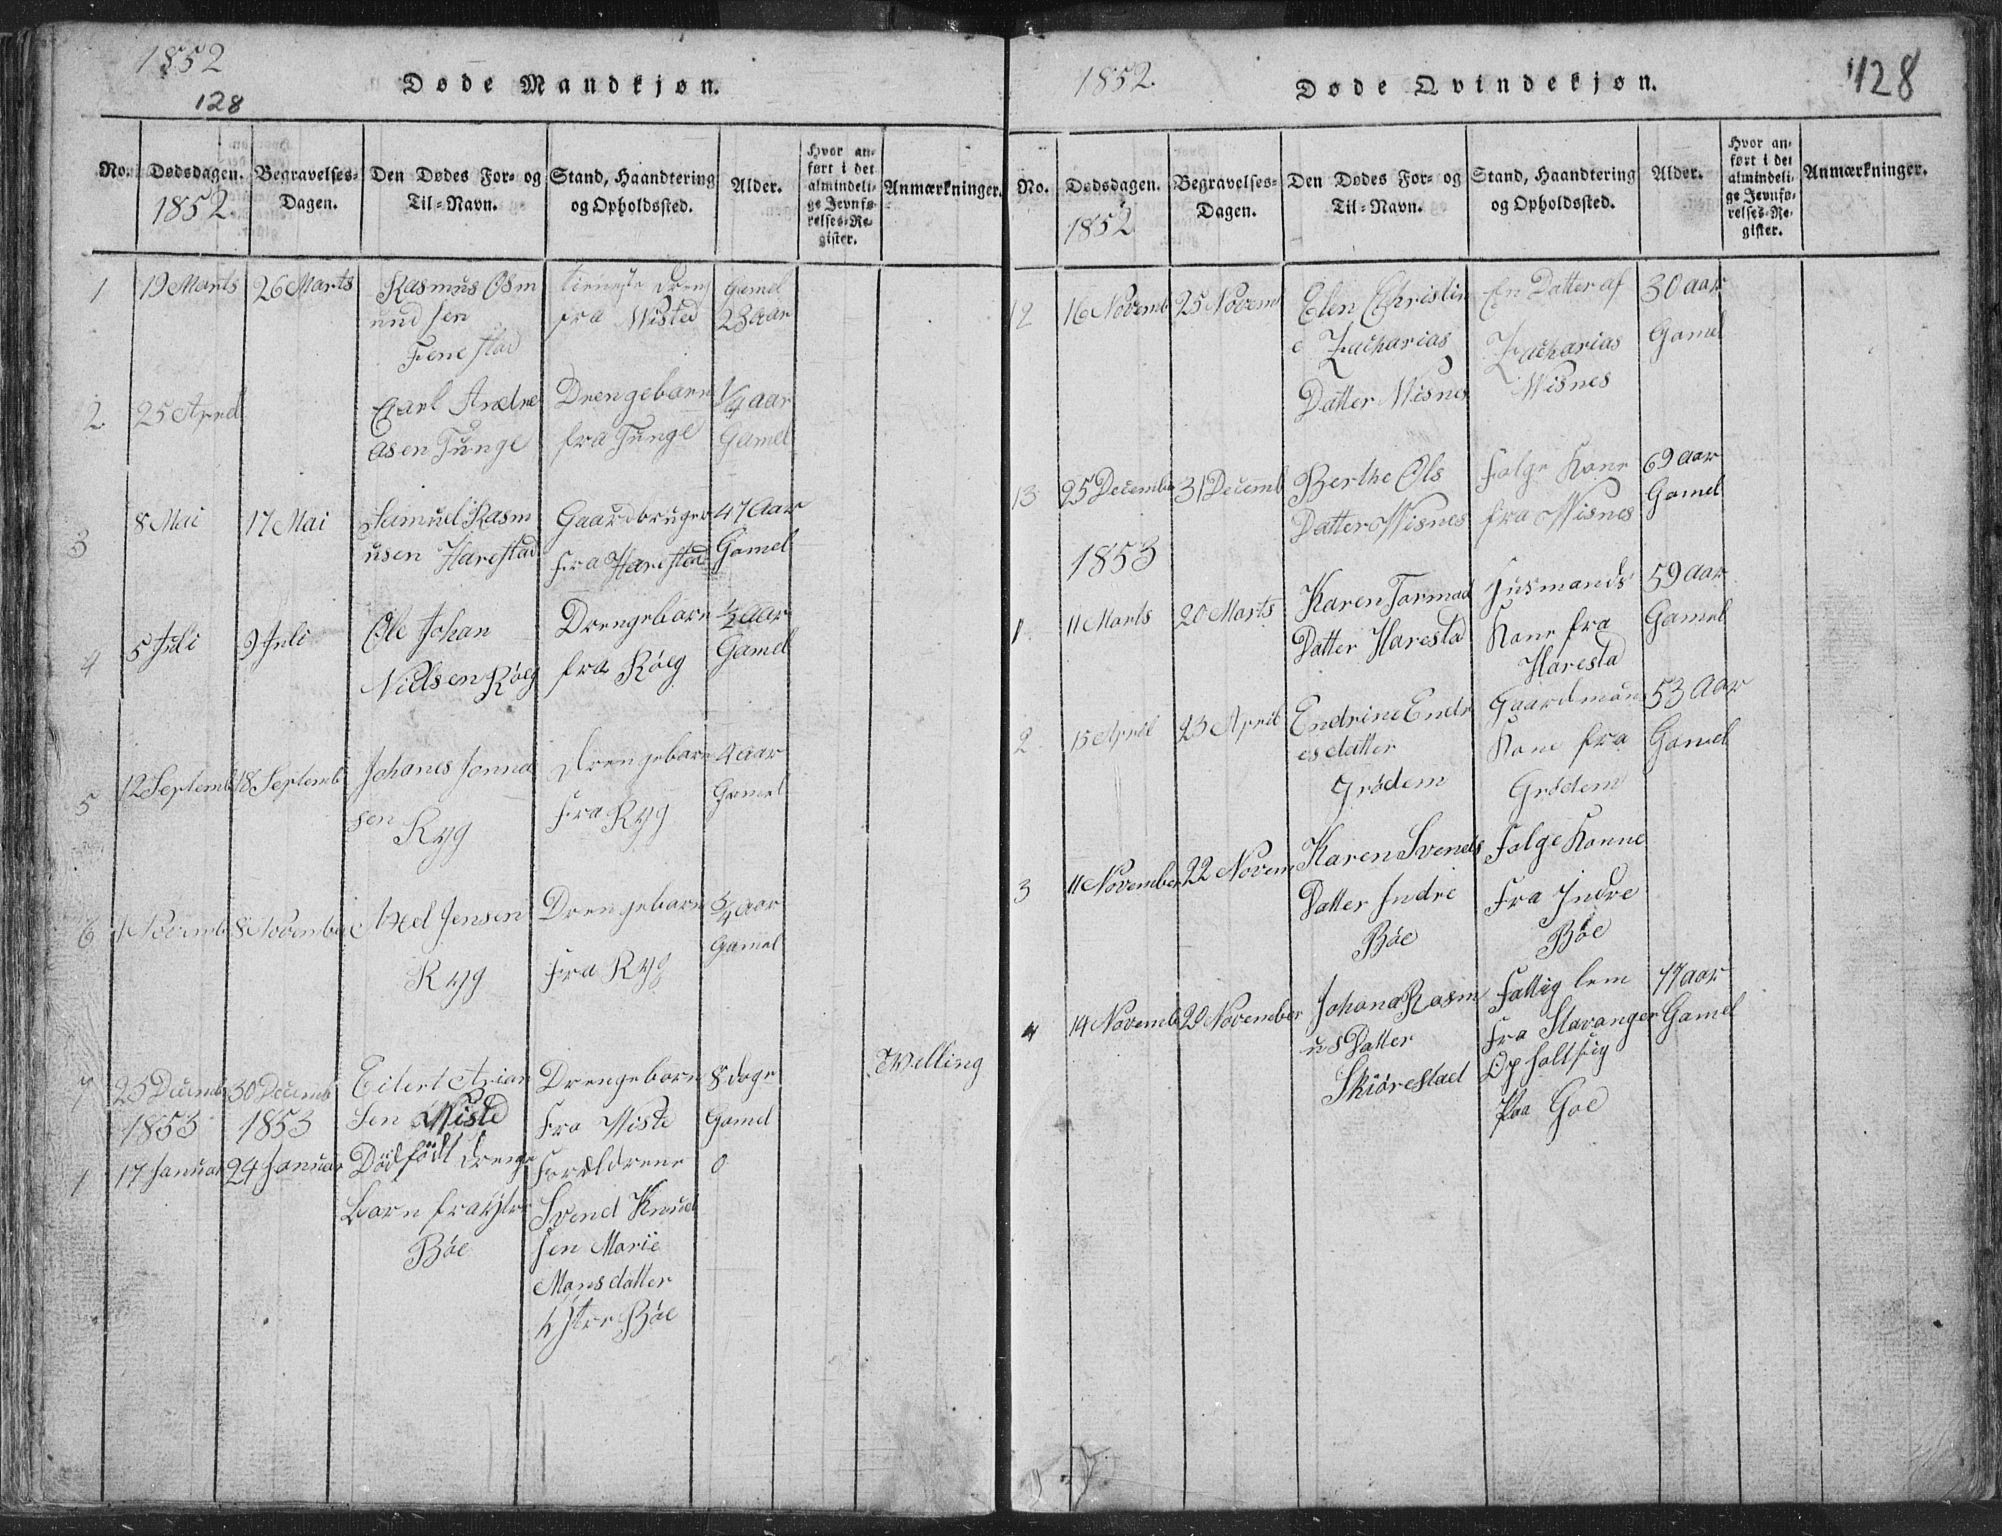 1852
128
Døde Mandkjøn.
No.
Dødsdagen.
1852
Begravelses-
Dagen.
Den Dødes For- og
Til-Navn.
Stand, Haandtering
og Opholdssted.
Alder.
Hvor an-
ført i det
almindeli-
ge Jevnfø-
relses-Re-
gister.
Anmærkninger.
1
19 Marts
26 Marts
Rasmus Osm
und sen
Fenestad
tieneste Dreng
fra Wisted
Gamel
23 Aar
2
25 April
Carl Andre
asen Tunge
Drengebarn
fra Tunge
1/4 aar
Gamel
3
8 Mai
17 Mai
Samuel Rasm
usen Harestad
Gaardbruger
fra Harestad
47 Aar
Gamel
4
5 Juli
9 Juli
Ole Johan
Nielsen Röeg
Drengebarn
fra Röeg
1/2 Aar
Gamel
5
12 Septemb
18 Septemb
Johanes Jonna
sen
Ryg
Drengebarn
Fra Ryg
4 aar
Gamel
6
1 Novemb
8 November
Axel Jensen
Ryg
Drengebarn
Fra Ryg
3/4 Aar
Gamel
7
23 Decemb
30 Decemb
Eilert Arian
sen Wiste
Drengebarn
Fra Wiste
8 dage
Gamel
Tvilling
1853
1853
1
17 Januar
24 Januar
Dödfödt Drenge
barn fra Ytre
Böe
Foreldrene
Svend Knud
sen Marie
Mansdatter
Ytre Böe
0
1852.
Døde Qvindekjøn.
128
No.
Dødsdagen.
1852
Begravelses-
Dagen.
Den Dødes For- og
Til-Navn.
Stand, Haandtering
og Opholdssted.
Alder.
Hvor an-
ført i det
almindeli-
ge Jevnfø-
relses-Re-
gister.
Anmærkninger.
12
16 Novemb
25 Novem
Elen Christin
e Zacharias
Datter Wisnes
En Datter af
Zacharias
Wisnes
30 aar
Gamel
13
25 December
31 Decemb
Berthe Ols
Datter Wisnes
Folge Kone
fra Wisnes
69 aar
Gamel
1853
1
11 Marts
20 Marts
Karen Tormod
Datter Haresta
Husmands
Kone fra
Haresta
59 aar
Gamel
2
15 April
23 April
Endrine Endr
esdatter
Grödem
Gaardman
Kone fra
Grödem
53 Aar
Gamel
3
11 November
22 Novem
Karen Svends
Datter Indre
Böe
Folge Konne
Fra Indre
Böe
4
14 Novemb
20 November
Johana Rasm
us Datter
Skiörestad
Fattig lem
Fra Stavanger
Opholtsig
Paa Goe
17 aar
Gamel